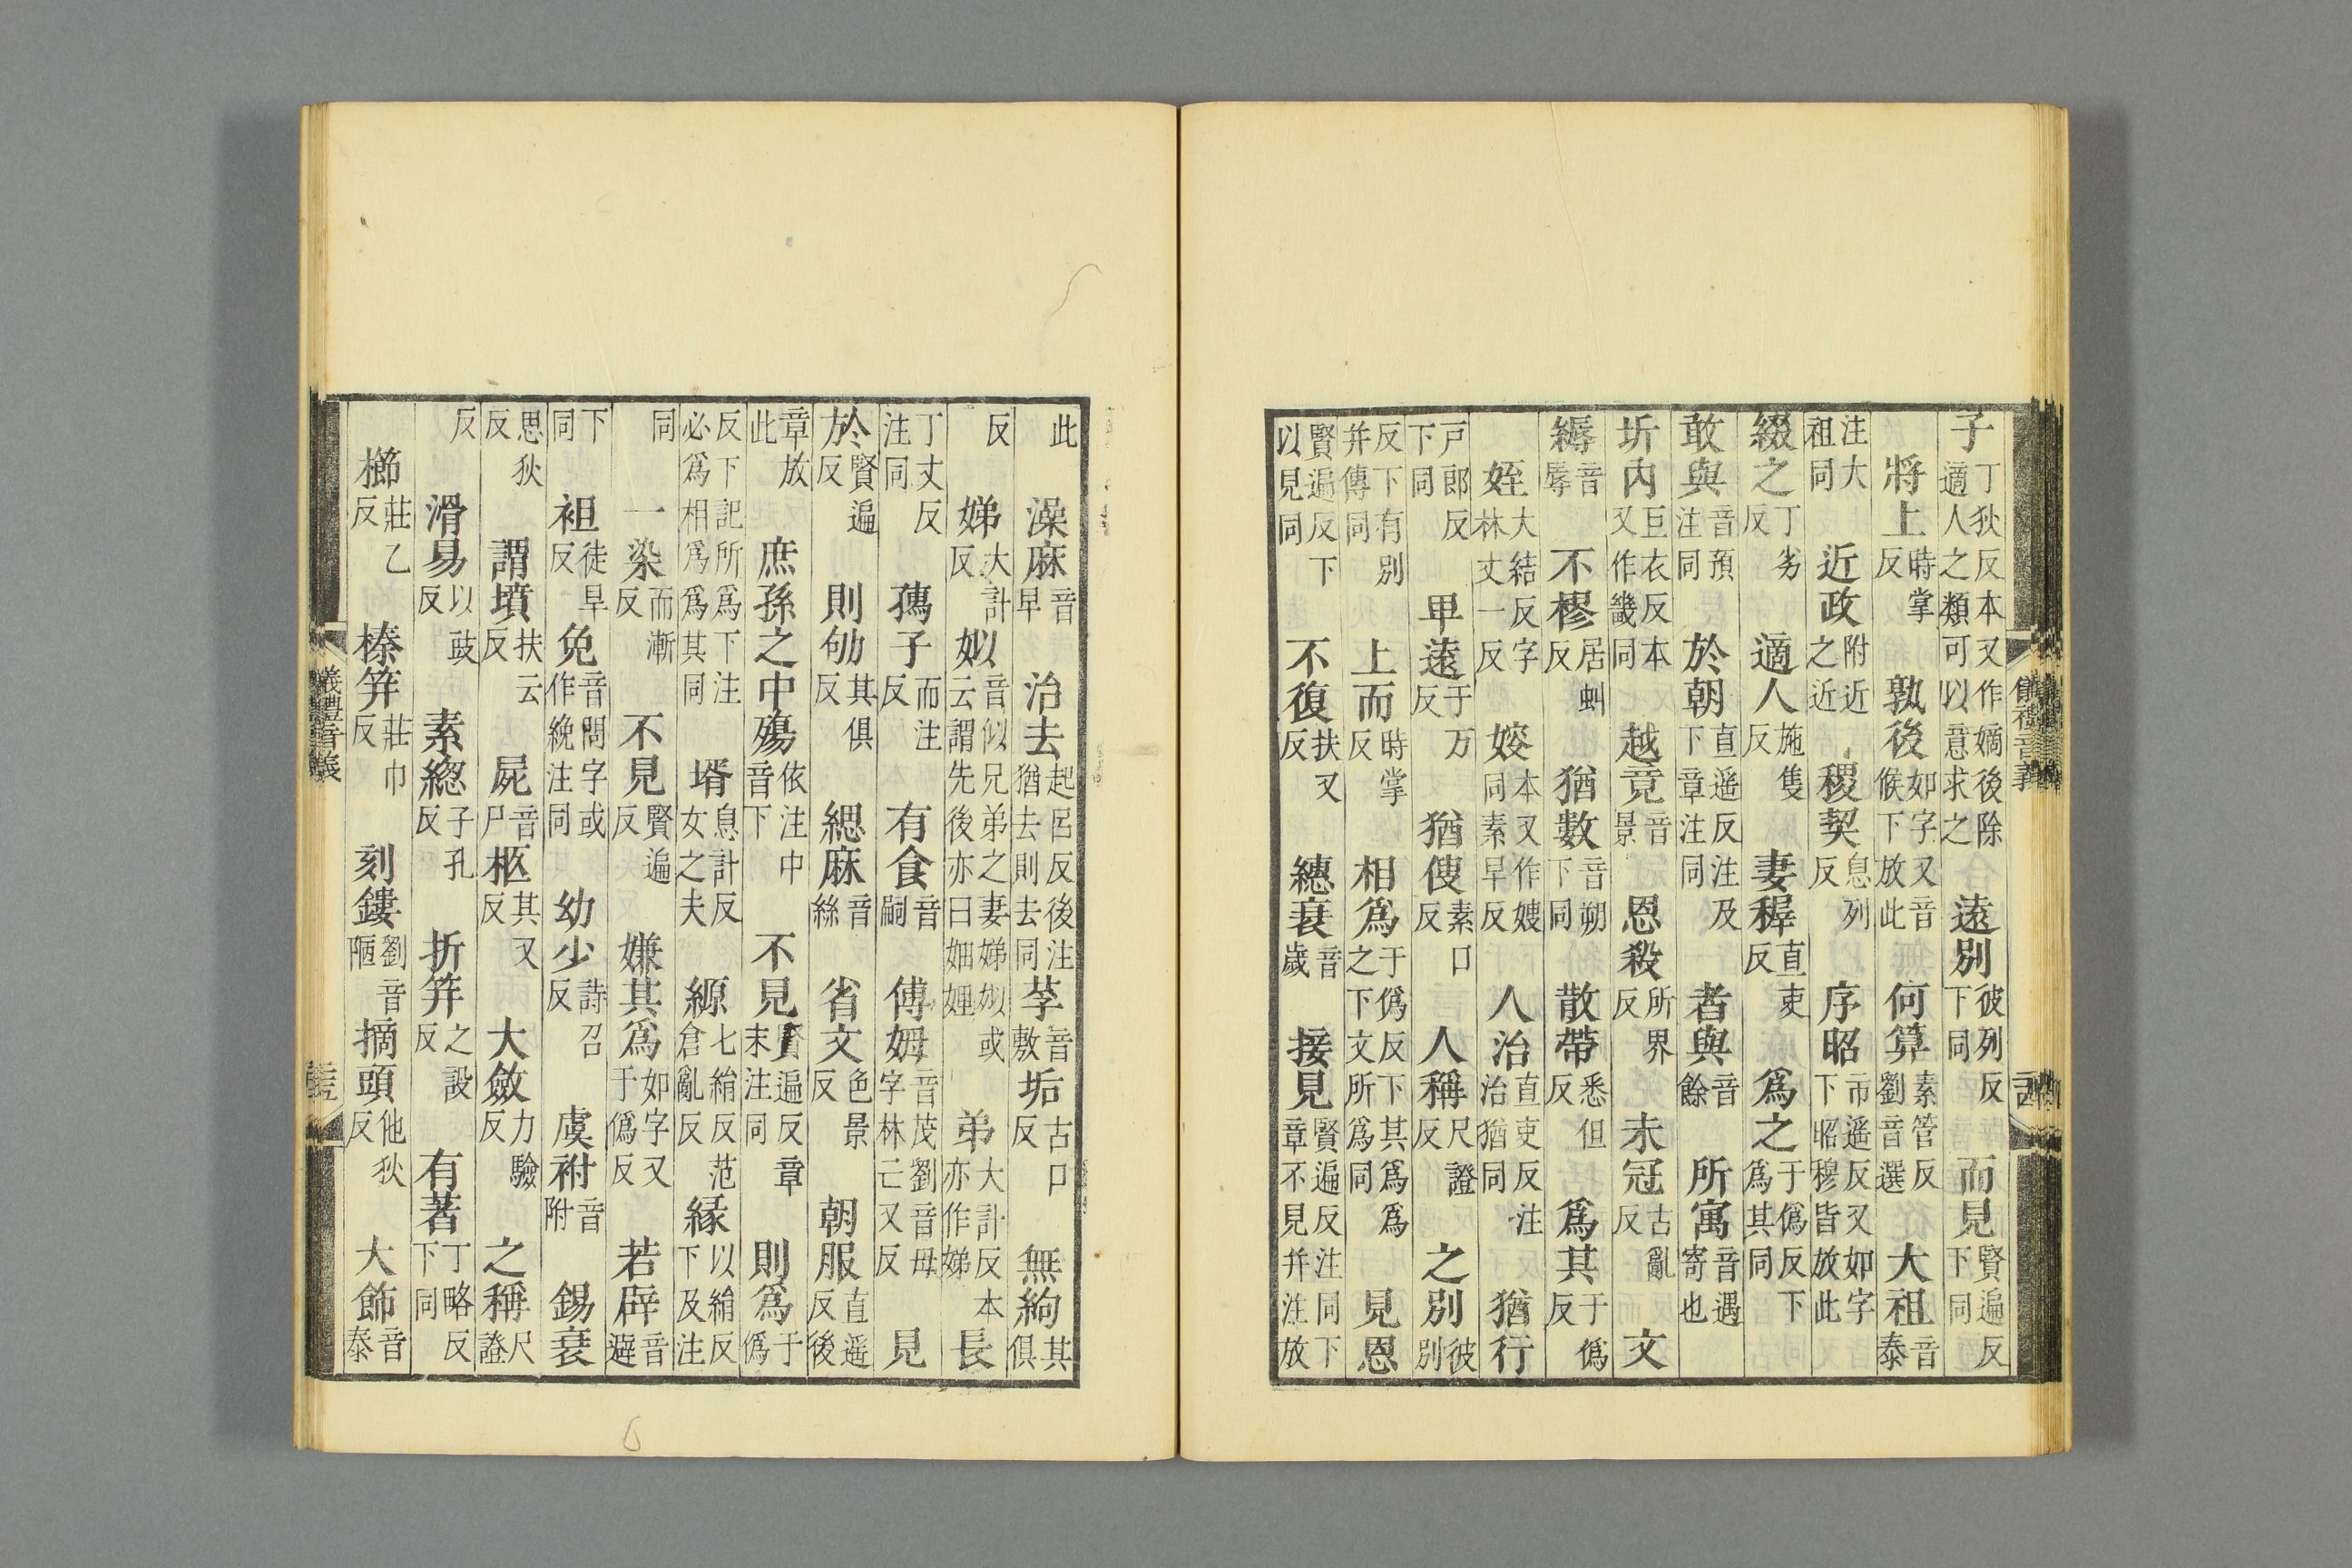 子丁狄反本又作嫡後除適人之類可以意求之 遠別彼列反下同 而見賢遍反下同
將上時掌反 孰後如字又音候下放此 何算素管反劉音選 大祖音泰
注大祖同 近政附近之近 稷契息列反 序昭市遥反又如字下昭穆皆放此
綴之丁劣反 適人施隻反 妻稺直吏反 爲之于僞反下爲其同
敢與音預注同 於朝直遥反注及下章注同 者與音餘 所寓音遇寄也
圻内巨衣反本又作畿同 越竟音景 恩殺所界反 未冠古亂反 文
縟音辱 不樛居虯反 猶數音朔下同 散帶悉但反 爲其于僞反
姪大結反字林丈一反 㛐本又作嫂同素早反 人治直吏反注治猶同 猶行
戸郎反下同 卑遠于万反 猶傁素口反 人稱尺證反 之別彼別
反下有別并傳同 上而時掌反 相爲于僞反下其爲爲之下文所爲同 見恩
賢遍反下以見同 不復扶又反 繐衰音歲 接見賢遍反注同下章不見并注放
儀禮音義
此 澡麻音早 治去起呂反後注猶去則去同 莩音敷 垢古口反 無絇其俱
反 娣大計反 姒音似兄弟之妻娣姒或云謂先後亦曰妯娌 弟大計反本亦作娣 長
丁丈反注同 孺子而注反 有食音嗣 傅姆音茂劉音母字林亡又反 見
於賢遍方反 則劬其俱反 緦麻音絲 省文色景反 朝服直遥反後
章放此 庶孫之中殤依注中音下 不見賢遍反章末注同 則爲于僞
反下記所爲下注必爲相爲爲其同 壻息計反女之夫 縓七絹反范倉亂反 緣以絹反下及注
同 一染而漸反 不見賢遍反 嫌其爲如字又于僞反 若辟音避
下同 袒徒旱反 免音問字或作絻注同 幼少詩召反 虞祔音附 錫衰
思狄反 謂墳扶云反 屍音尸 柩其又反 大斂力驗反 之稱尺證
反 滑易以豉反 素緫子孔反 折笄之設反 有著丁略反下同
櫛莊乙反 榛笄莊巾反 刻鏤劉音陋 摘頭他狄反 大飾音泰
儀禮音義